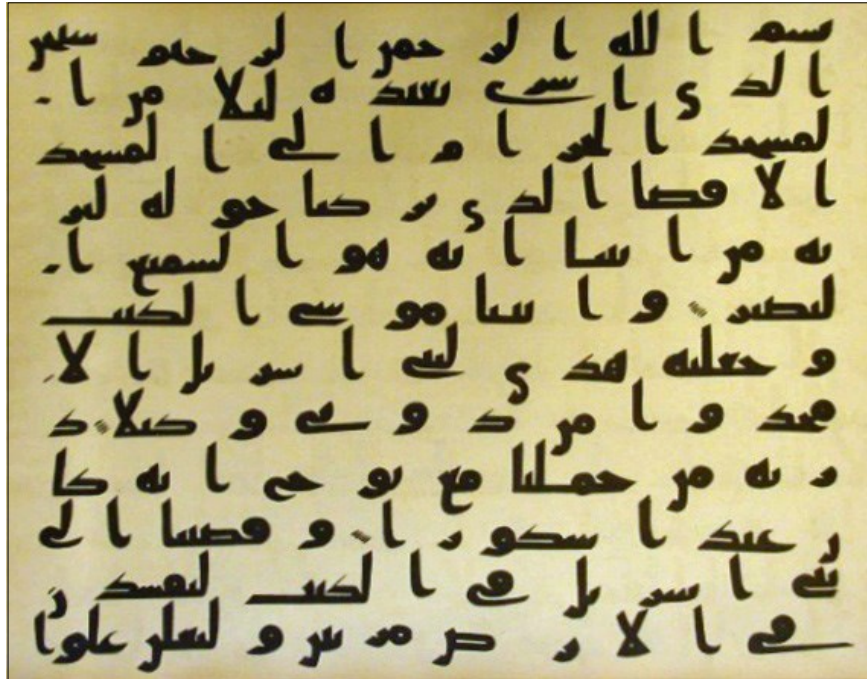 بسم الله الرحمن الرحيم سبحن
الذي اسرى بعبده ليلا من ا
لمسجد الحرام الى المسجد
الاقصا الذي بركنا حوله لنر
يه من ايتنا انه هو السميع ا
لبصير واتينا موسى الكتب
وجعلنه هدى لبني اسريل الا
تتخذوا من دوني وكيلا ذ
رية من حملنا مع نوح انه كا
ن عبدا شكورا وقضينا الى
بني اسريل في الكتب لتفسدن
في الارض مرتين ولتعلن علوا